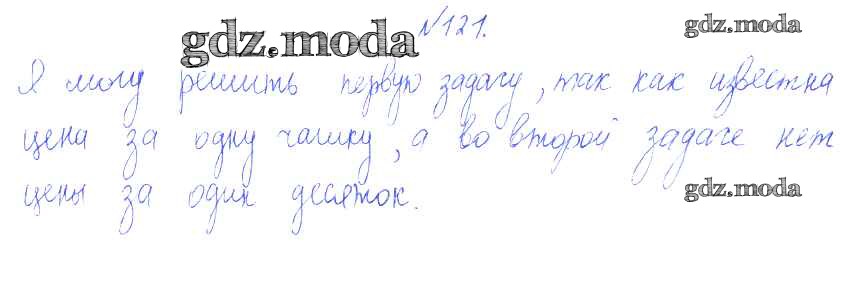 №121.
gdz.moda
gdz.moda
Я могу решить первую задачу, так как известна
цена за одну чашку, а во второй задаче нет
цены за один десяток.
gdz.moda